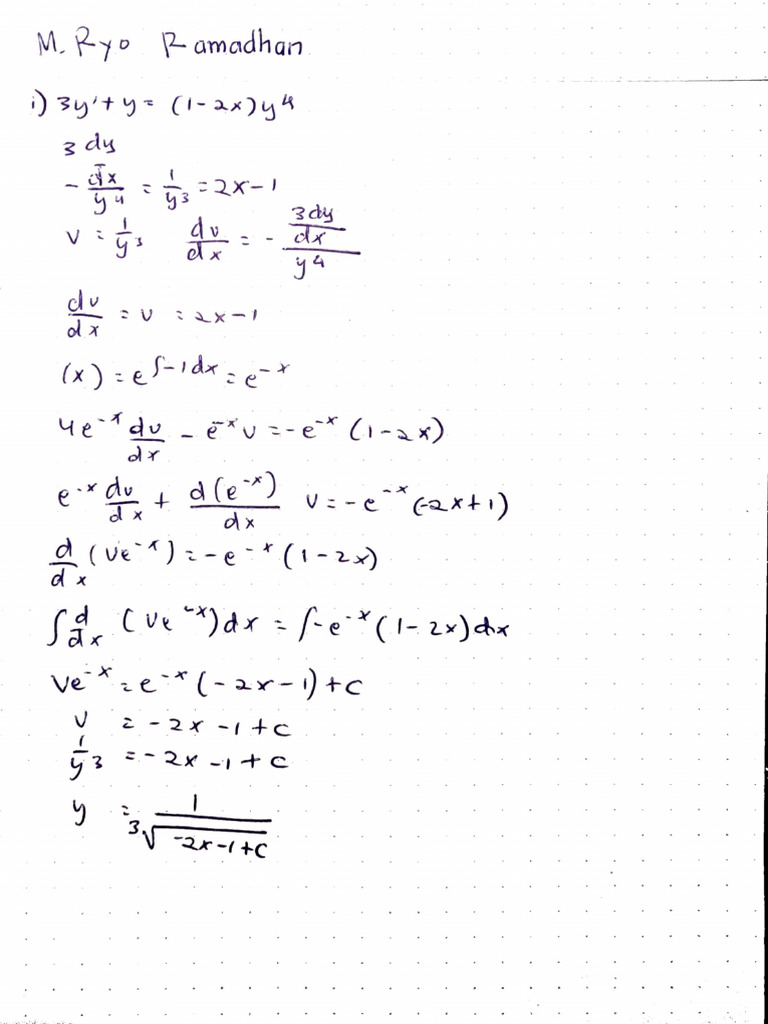 M. Ryo Ramadhan
1) 3y' + y = (1-2x)y⁴
3 dy
- dx/y⁴ = 1/y³ = 2x-1
v = 1/y³  dv/dx = - (3dy/dx)/y⁴
dv/dx = v = 2x-1
(x) = e^∫-1dx = e^-x
4e^-x dv/dx - e^-x v = -e^-x (1-2x)
e^-x dv/dx + d(e^-x)/dx v = -e^-x (-2x+1)
d/dx (ve^-x) = -e^-x (1-2x)
∫ d/dx (ve^-x)dx = ∫-e^-x (1-2x)dx
ve^-x = e^-x (-2x-1)+c
v = -2x-1+c
1/y³ = -2x-1+c
y = 1/³√(-2x-1+c)